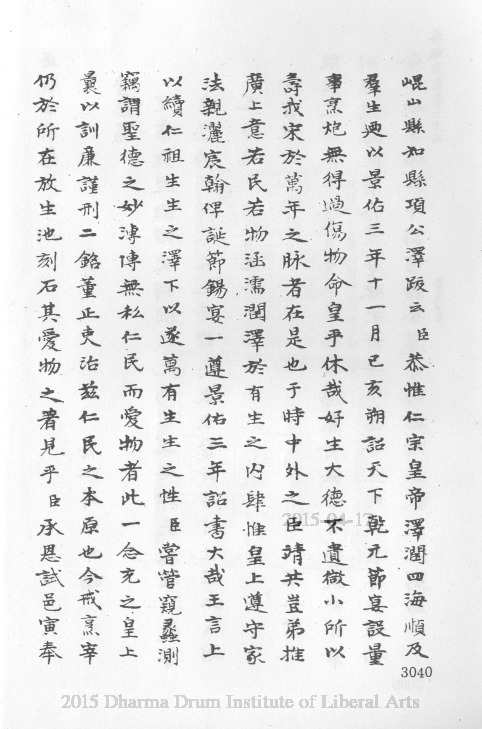 崐山縣知縣項公澤跋云臣恭惟仁宗皇帝澤潤四海順及
羣生典以景佑三年十一月己亥朔詔天下乾元節宴設量
事烹炮無得過傷物命皇乎休哉好生大德不遺微小所以
壽我宋於萬年之脉者在是也于時中外之臣靖共豈弟推
廣上意若民若物涵濡潤澤於有生之內肆惟皇上遵守家
法親灑宸翰俾誕節錫宴一遵景佑三年詔書大哉王言上
以續仁祖生生之澤下以遂萬有生生之性臣嘗管窺蠡測
竊謂聖德之妙溥博無私仁民而愛物者此一念充之皇上
曩以訓廉謹刑二銘董正吏治茲仁民之本原也今戒烹宰
仍於所在放生池刻石其愛物之著見乎臣承恩試邑寅奉
3040
2015-04-17
2015 Dharma Drum Institute of Liberal Arts